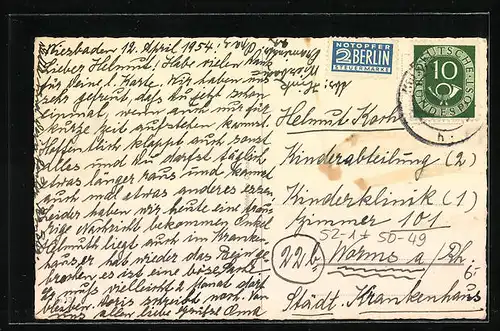 Wiesbaden 12. April 1954.
Lieber Helmut! Habe vielen Dank
für Deine l. Karte. Wir haben uns
sehr gefreut, dass Du jetzt schon
einmal, wenn auch nur für
kurze Zeit aufstehen kannst.
Hoffentlich klappt auch sonst
alles und Du darfst täglich
etwas länger raus und kannst
auch mal etwas anderes essen.
Leider haben wir heute eine trau-
rige Nachricht bekommen, Onkel
Helmuth liegt auch im Kranken-
haus, er hat wieder das Bein ge-
brochen, es ist eine böse
er muss vielleicht 2 Monat dort
bleiben. Doris schreib noch. Von
uns allen liebe Grüsse Oma
NOTOPFER
2 BERLIN
STEUERMARKE
DEUTSCHE
10
BUNDESPOST
Helmut
Kinderabteilung (2)
Kinderklinik (1)
Zimmer 101
52-1+ 50-49
22b
Worms a/Rh.
Städt. Krankenhaus